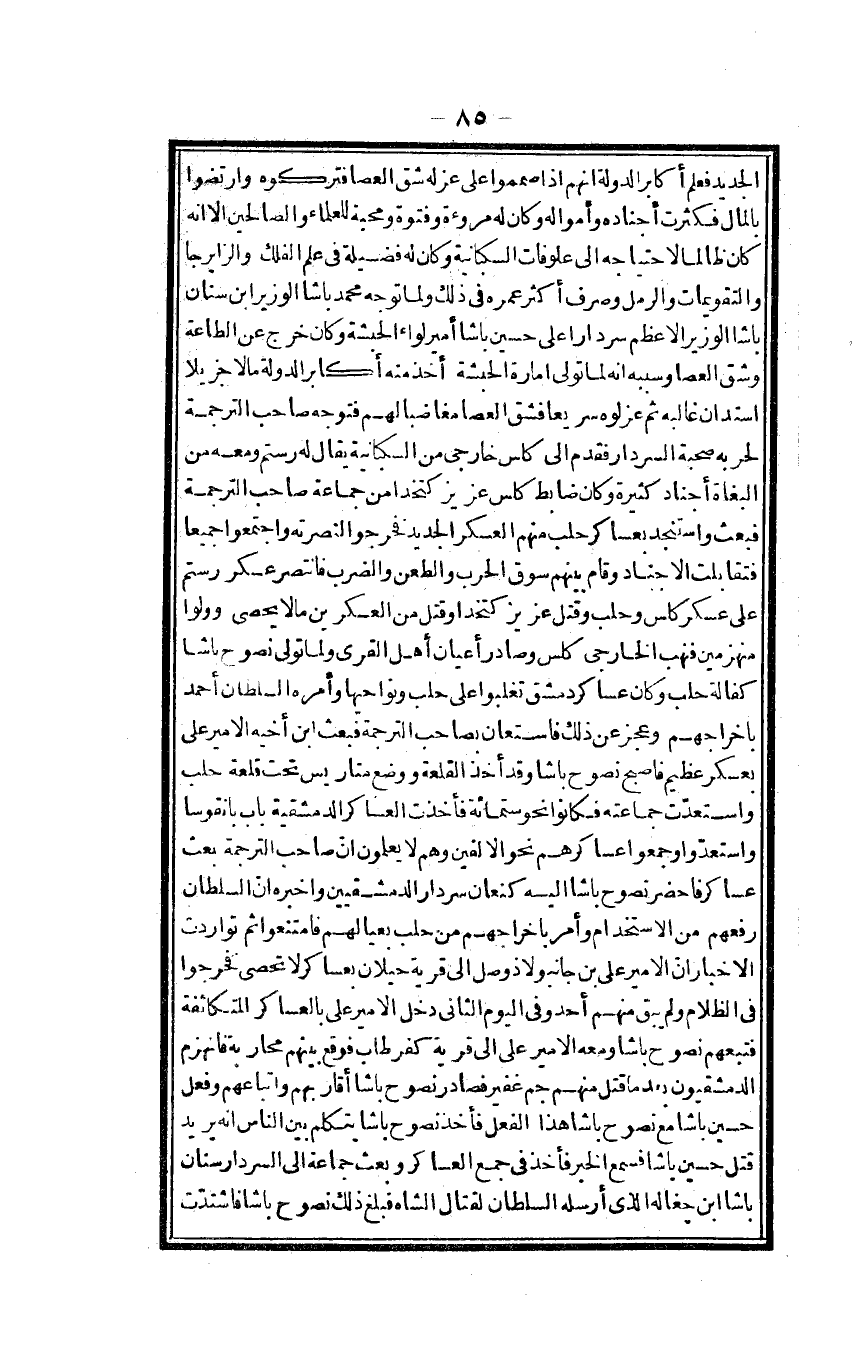 – ٨٥ –
الجديد فعلم أكابر الدولة انهم اذا صمموا على عزله شق العصا فتركوه وارتضوا
بالمال فكثرت أجناده وأمواله وكان له مروءة وفتوة ومحبة للعلماء والصالحين الا انه
كان ظالما لاحتياجه الى علوفات السكبانية وكان له فضيلة فى علم الفلك والزايرجا
والتقويمات والرمل وصرف أكثر عمره فى ذلك ولما توجه محمد باشا الوزير ابن سنان
باشا الوزير الاعظم سردارا على حسين باشا أمير لواء الحبشة وكان خرج عن الطاعة
وشق العصا وسببه انه لما تولى امارة الحبشة أخذ منه أكابر الدولة مالا جزيلا
استدان غالبه ثم عزلوه سريعا فشق العصا مغاضبا لهم فتوجه صاحب الترجمة
لحربه صحبة السردار فقدم الى كلس خارجى من السكبانية يقال له رستم ومعه من
البغاة أجناد كثيرة وكان ضابط كلس عزيز كتخدا من جماعة صاحب الترجمة
فبعث واستنجد بعساكر حلب منهم العسكر الجديد فخرجوا لنصرته واجتمعوا جميعا
فتقابلت الاجناد وقام بينهم سوق الحرب والطعن والضرب فانتصر عسكر رستم
على عسكر كلس وحلب وقتل عزيز كتخدا وقتل من العسكرين مالا يحصى وولوا
منهزمين فنهب الخارجى كلس وصادر أعيان أهل القرى ولما تولى نصوح باشا
كفالة حلب وكان عساكر دمشق تغلبوا على حلب ونواحيها وأمره السلطان أحمد
باخراجهم وعجز عن ذلك فاستعان بصاحب الترجمة فبعث ابن أخيه الامير على
بعسكر عظيم فاصبح نصوح باشا وقد أخذ القلعة ووضع متاريس تحت قلعة حلب
واستعدّت جماعته فكانوا نحو ستمائة فأخذت العساكر الدمشقية باب بانقوسا
واستعدّوا وجمعوا عساكرهم نحو الالفين وهم لا يعلمون انّ صاحب الترجمة بعث
عساكر فاحضر نصوح باشا اليه كنعان سردار الدمشقيين واخبره ان السلطان
رفعهم من الاستخدام وأمر باخراجهم من حلب بعيالهم فامتنعوا ثم تواردت
الاخبار انّ الامير على بن جانبولاذ وصل الى قرية حيلان بعساكر لا تحصى فخرجوا
فى الظلام ولم يبق منهم أحد وفى اليوم الثانى دخل الامير على بالعساكر المتكاثفة
فتبعهم نصوح باشا ومعه الامير على الى قرية كفر طاب فوقع بينهم محاربة فانهزم
الدمشقيون بعد ما قتل منهم جم غفير فصادر نصوح باشا أقاربهم واتباعهم وفعل
حسين باشا مع نصوح باشا هذا الفعل فأخذ نصوح باشا يتكلم بين الناس انه يريد
قتل حسين باشا فسمع الخبر فأخذ فى جمع العساكر وبعث جماعة الى السردار سنان
باشا ابن جغاله الذى أرسله السلطان لقتال الشاه فبلغ ذلك نصوح باشا فاشتدّت